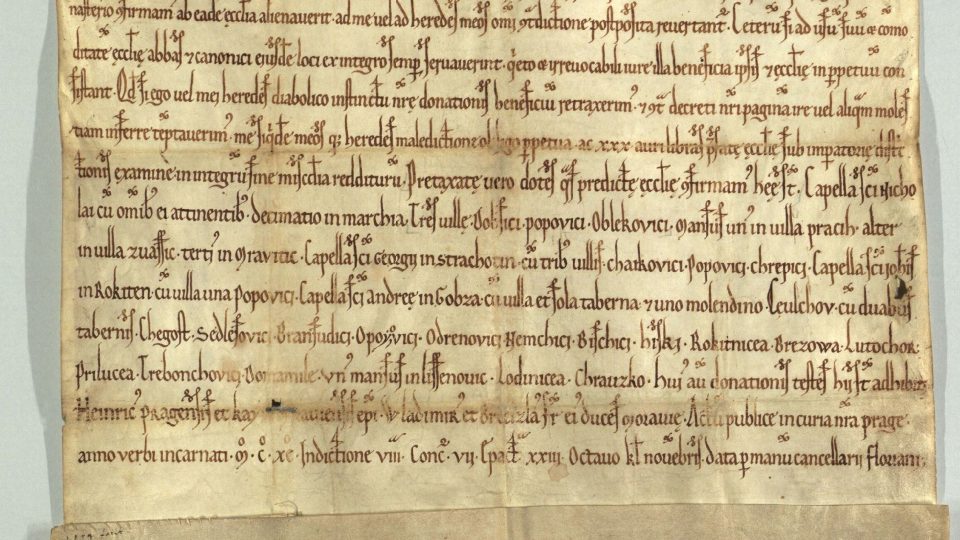 nasterio ꝯfirmam᷒ ab eadē ęcclia alienauerit · ad me uel ad heredeſ meoſ om̄i ꝯtdictione poſtpoſita reuertant᷑ · Ceterū ſi ad uſū ſuū ⁊ como
ditatē ęcclię abbaſ ⁊ canonici eiuſdē loci ex integro ſemp̱ ſeruauerint · q̇eto ⁊ irreuocabili iure illa beneficia ipſiſ ⁊ ęcclię in ꝑpetuū con
ſiſtant · Qđ ſi ego uel mei heredeſ diabolico inſtinctu nrę donationiſ beneficiū retraxerim᷒ · ⁊ ꝯt᷑ decreti nr̄i pagina ire uel aliqm̄ moleſ
tiam inferre teptauerim᷒ · me ſiq̇dē meoſ q; heredeſ maledictione ꝑpetua · ac xxx auri libraſ p̄fatę ęcclię ſub impatorię diſt̓c
tioniſ examine in integrū ſine miſc̄dia redditurū · Pretaxatę uero doteſ qſ predictę ęcclię ꝯfirmam᷒ hęę ſt̄ · Capella ſc̄i Nicho
lai cū om̄ib᷒ ei attinentib᷒ · Decimatio in marchia · Treſ uillę · popovici · Oblekovici · manſuſ un᷒ in uilla pracih · alter
in uilla · terti᷒ in Mravitic · Capella ſc̄i Georgii in Strachotin · cū trib᷒ uilliſ · chaikovici · Popovici · chrepici · Capella ſc̄i ioħiſ
in Rokiten · cū uilla una Popovici · Capella ſc̄i andreę in Gobza · cū uilla et ſola taberna · ⁊ uno molendino · Leulchov · cū duabuſ
taberniſ · Chegoſt · Sedleſovic · Branſudici · Opozvici · Odrenovici · Nemchici · Biſchici · hiſki · Rokitnicea · Brezowa · Lutochor
Prilucea · Trebonchovici · Domamile · vn᷒ manſuſ in liſſenovic · Lodinicea · Chrauzko · hui᷒ aū donationiſ teſteſ hii ſt̄ adhibiti
heinric᷒ pragenſiſ et epi · Wladimir᷒ et fr̄ ei᷒ duceſ moravię · Actū publice in curia nr̄a prage ·
anno verbi incarnati · M · C · XC · Indictione viii · Conc̄ · vii · Epact̄ · xxiii · Octauo kl̄ nouēbriſ · data ꝑ manū cancellarii floriani ·